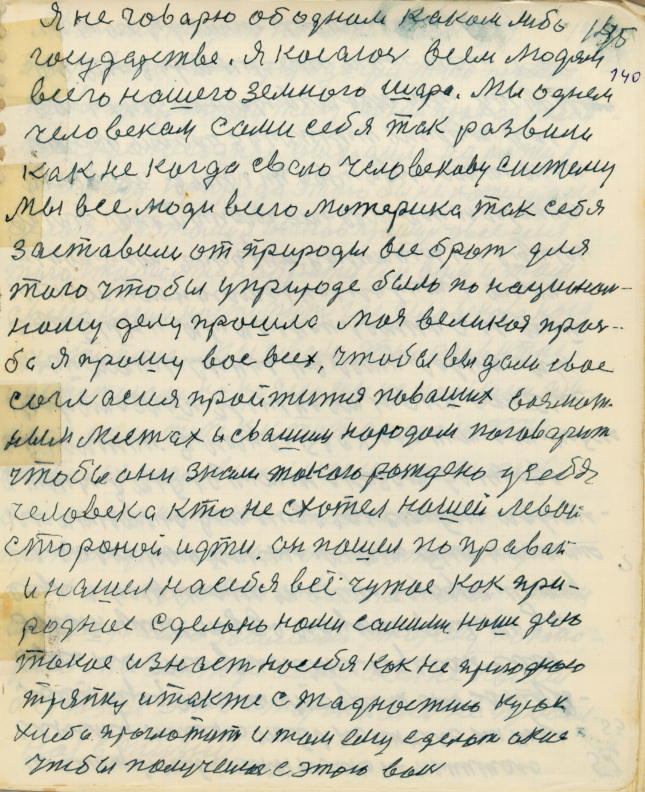 Я не говарю ободном каком либо 135
государстве. Я косаюсь всем людям 140
всего нашего земного шара. Мы однем
человекам сами себя так развили
как не когда свою человекову систему
Мы все люди всего материка так себя
заставили от природы все брат для
того чтобы уприроде было по национал-
ному делу прошло моя великая прось-
ба я прошу вас всех, чтобы вы дали свое
согласия пройтится поваших
ным местах и свашим народом поговарит
чтобы они знали такого рождено усебя
человека кто не схотел нашей левой
стороной идти. он пошел по правай
и нашел насебя всё чужое как при-
родное сделано нами самими наше дело
такое износит насебя как не пригодною
тряпку и также с жадностью кусок
хлеба проглотит и там ему сделат
чтобы получится с этого вам